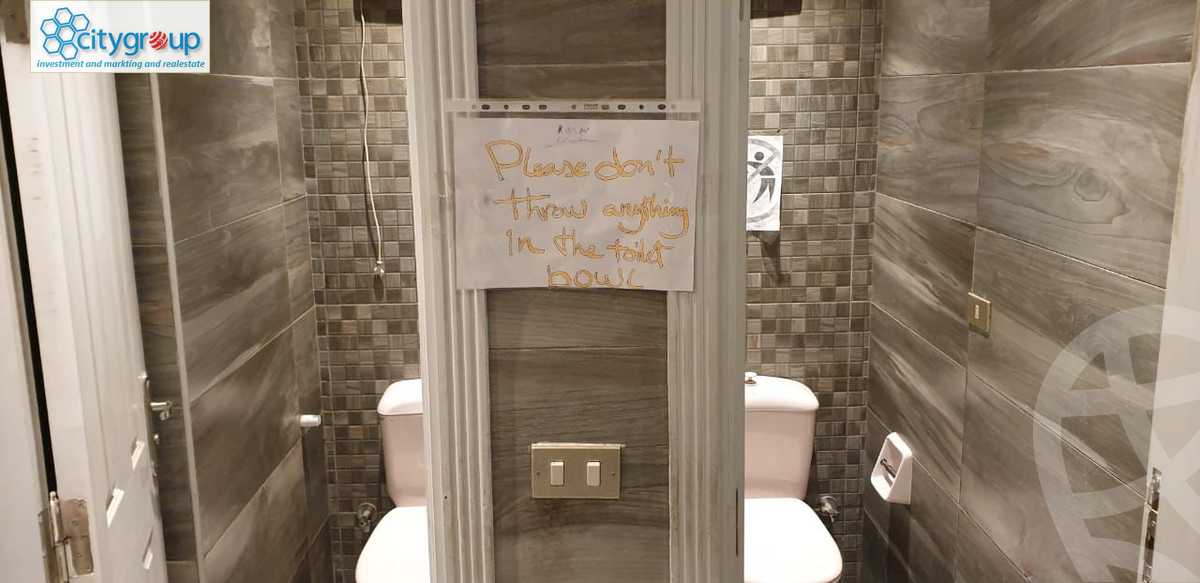 citygroup
investment and markting and realestate
Please don't
throw anything
in the toilet
bowl